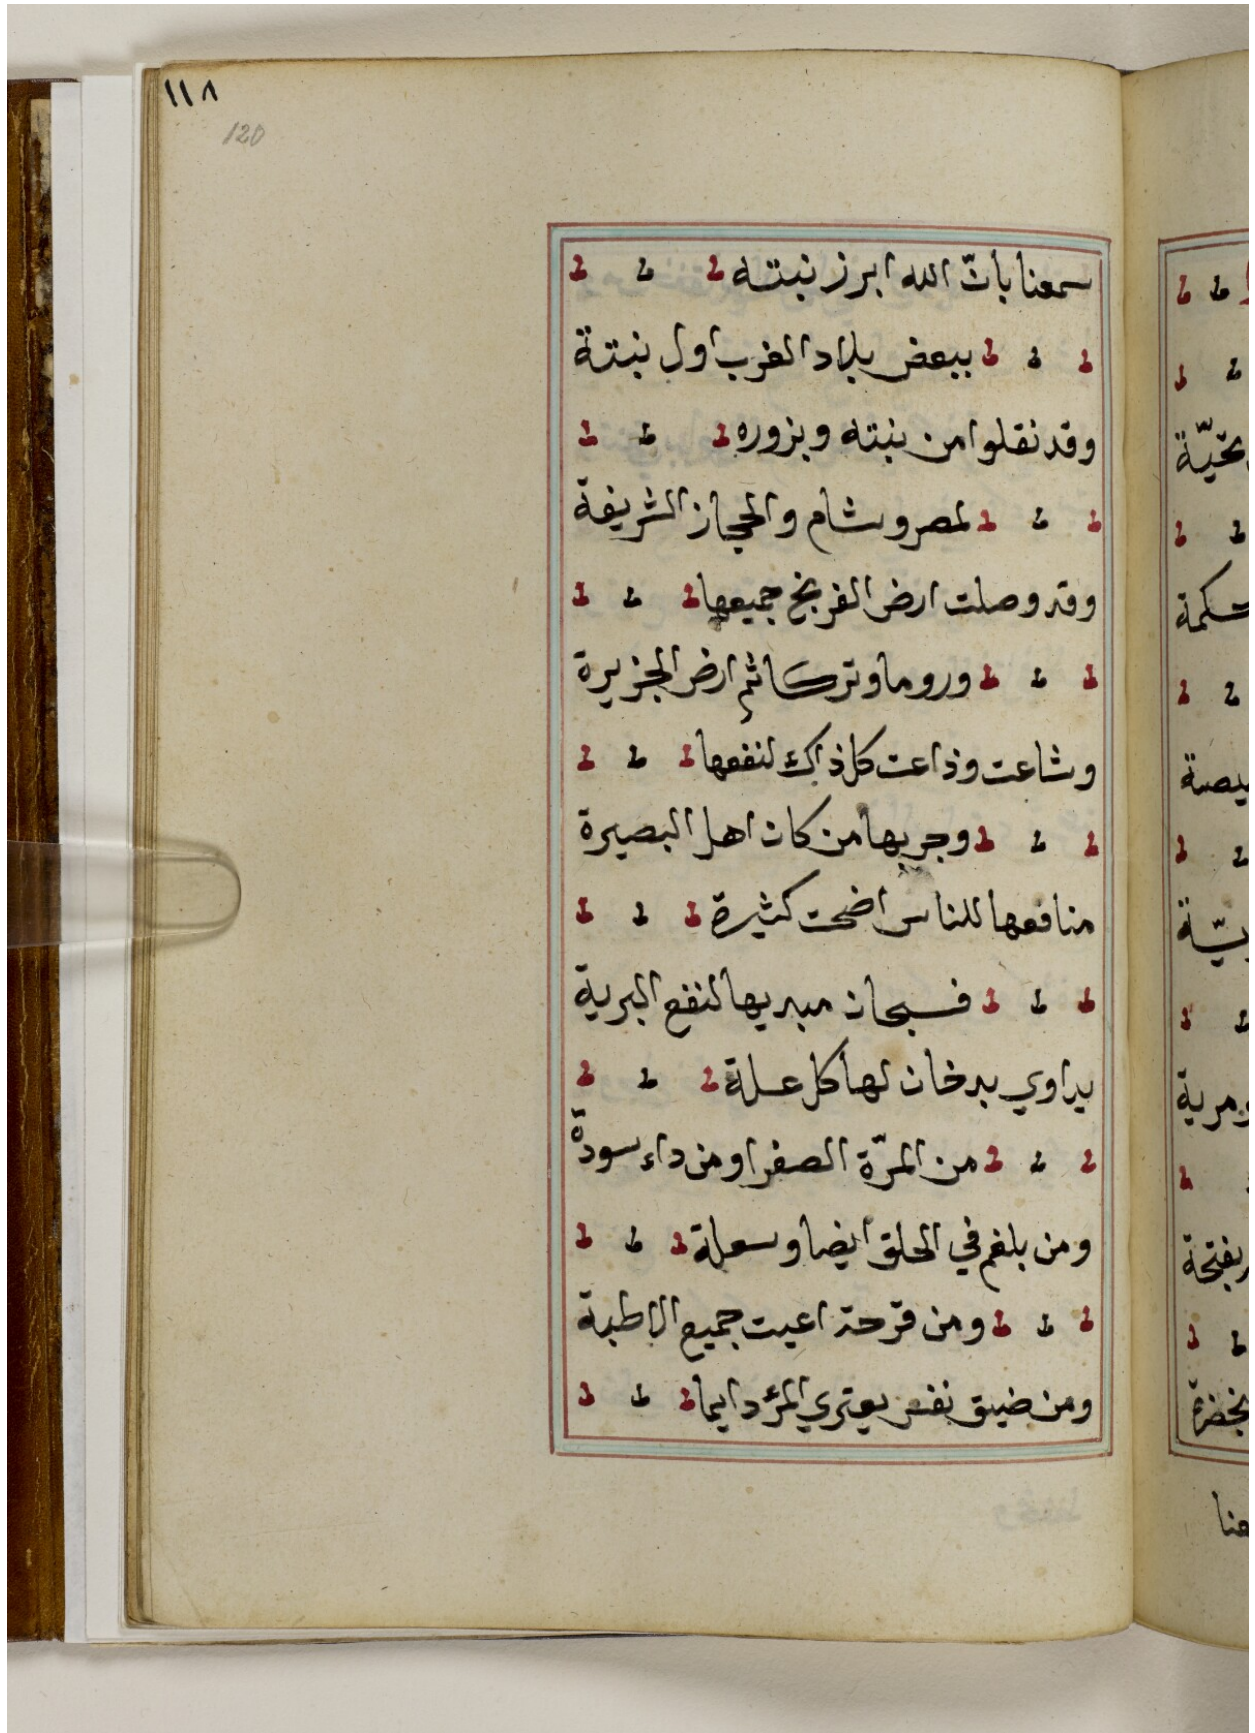 ١١٨
120
سمعنا بانّ الله ابرز نبتة
ببعض بلاد الغرب اول نبتة
وقد نقلوا من نبته وبزوره
لمصر وشام والحجاز الشريفة
وقد وصلت ارض الفرنج جميعها
وروما وتركا ثم ارض الجزيرة
وشاعت وذاعت كل ذاك لنفعها
وجربها من كان اهل البصيرة
منافعها للناس اضحت كثيرة
فسبحان مبديها لنفع البرية
يداوي بدخان لها كل علة
من المرّة الصفرا ومن داء سودة
ومن بلغم في الحلق ايضا وسعلة
ومن قرحة اعيت جميع الاطبة
ومن ضيق نفس يعتري المرء دايما
تحيّة
شكمة
بفتحة
بخضرة